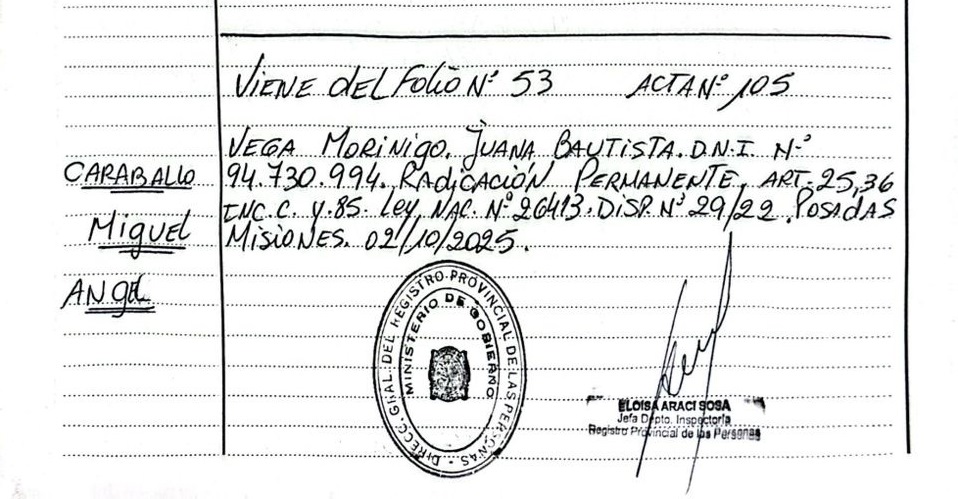 VIENE DEL FOLIO Nº 53 ACTA Nº 105
CARABALLO
MIGUEL
ANGEL
VEGA MORINIGO. JUANA BAUTISTA. D.N.I. Nº
94.730.994. RADICACIÓN PERMANENTE, ART. 25,36
INC. C. Y. 85. LEY, NAC. Nº 26413. DISP. Nº 29/22. POSADAS
MISIONES. 02/10/2025.
DIRECC. GRAL. DEL REGISTRO PROVINCIAL DE LAS PERSONAS
MINISTERIO DE GOBIERNO
ELOISA ARACI SOSA
Jefa Dpto. Inspectoría
Registro Provincial de las Personas